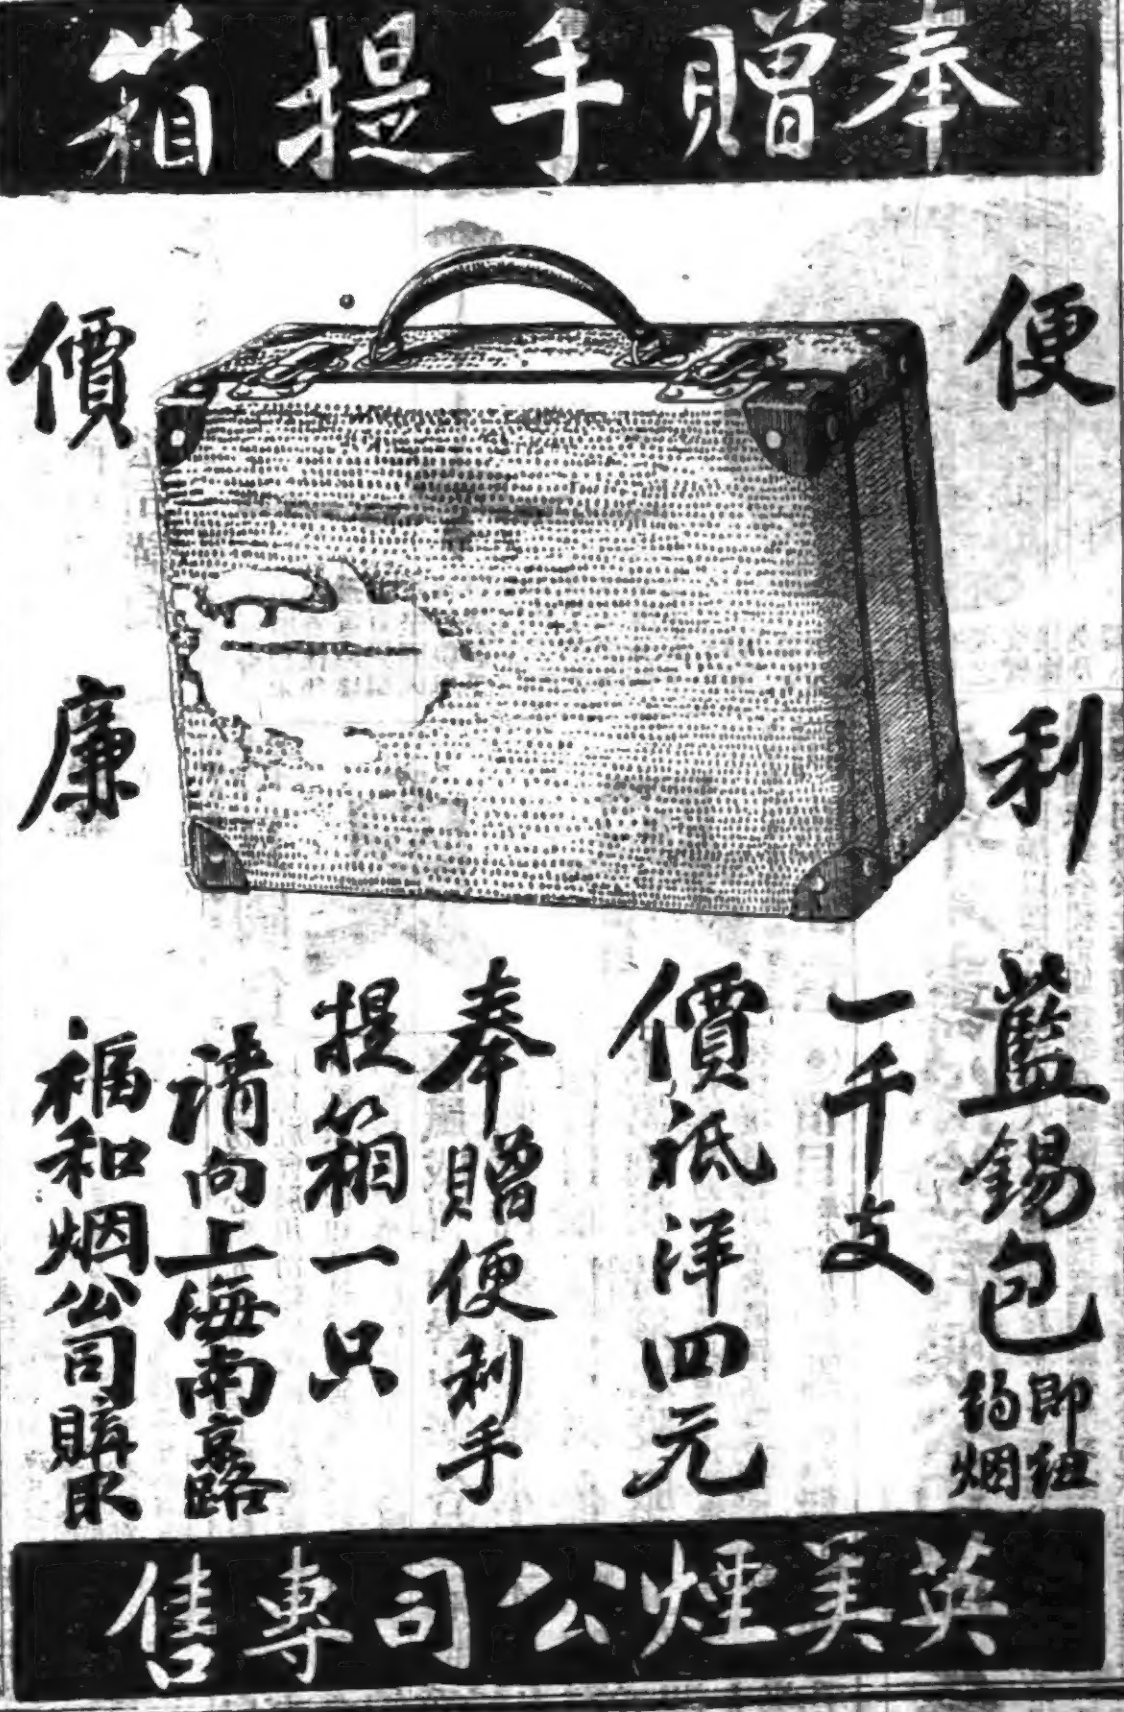 奉贈手提箱
便利
價廉
藍錫包
即紐
約烟
一千支
價祗洋四元
奉贈便利手
提箱一只
請向上海南京路
福和烟公司購取
英美煙公司專售